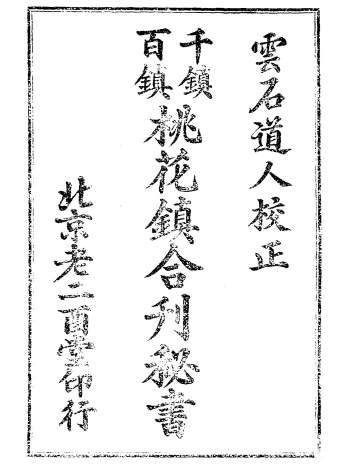 雲石道人校正
千鎮
百鎮
桃花鎮合刊秘書
北京老二酉堂印行